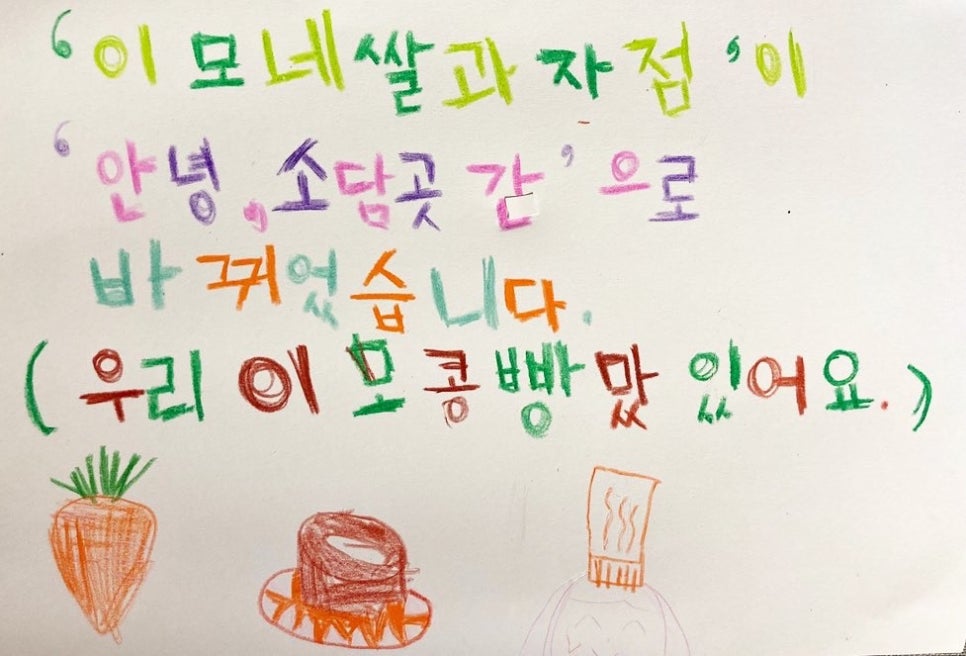 '이모네쌀과자점'이
'안녕,소담곳간'으로
바뀌었습니다.
(우리 이모콩빵맛있어요.)